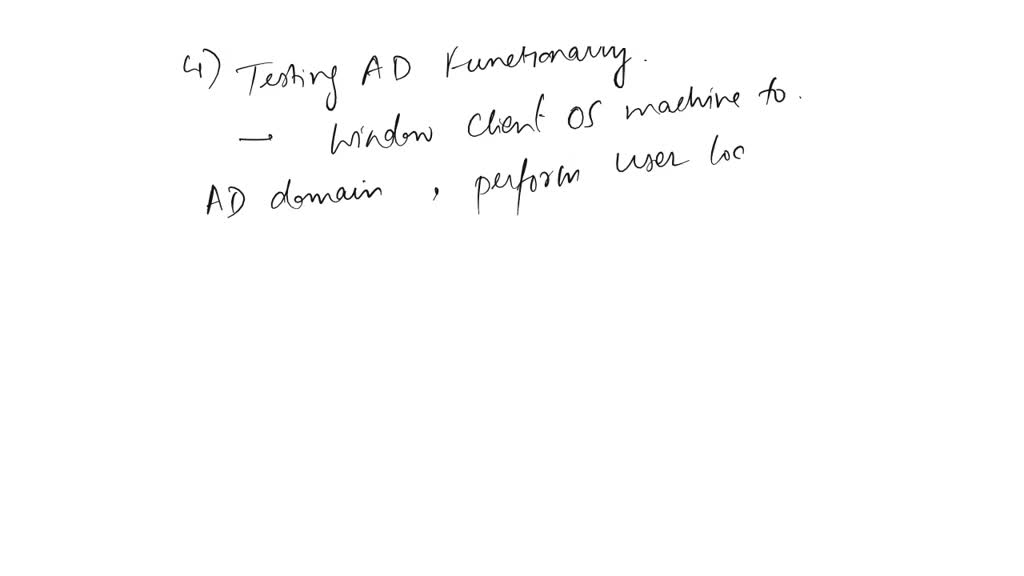 4) Testing AD Functionarry.
→ Window Client OS machine to.
AD domain, perform user loc